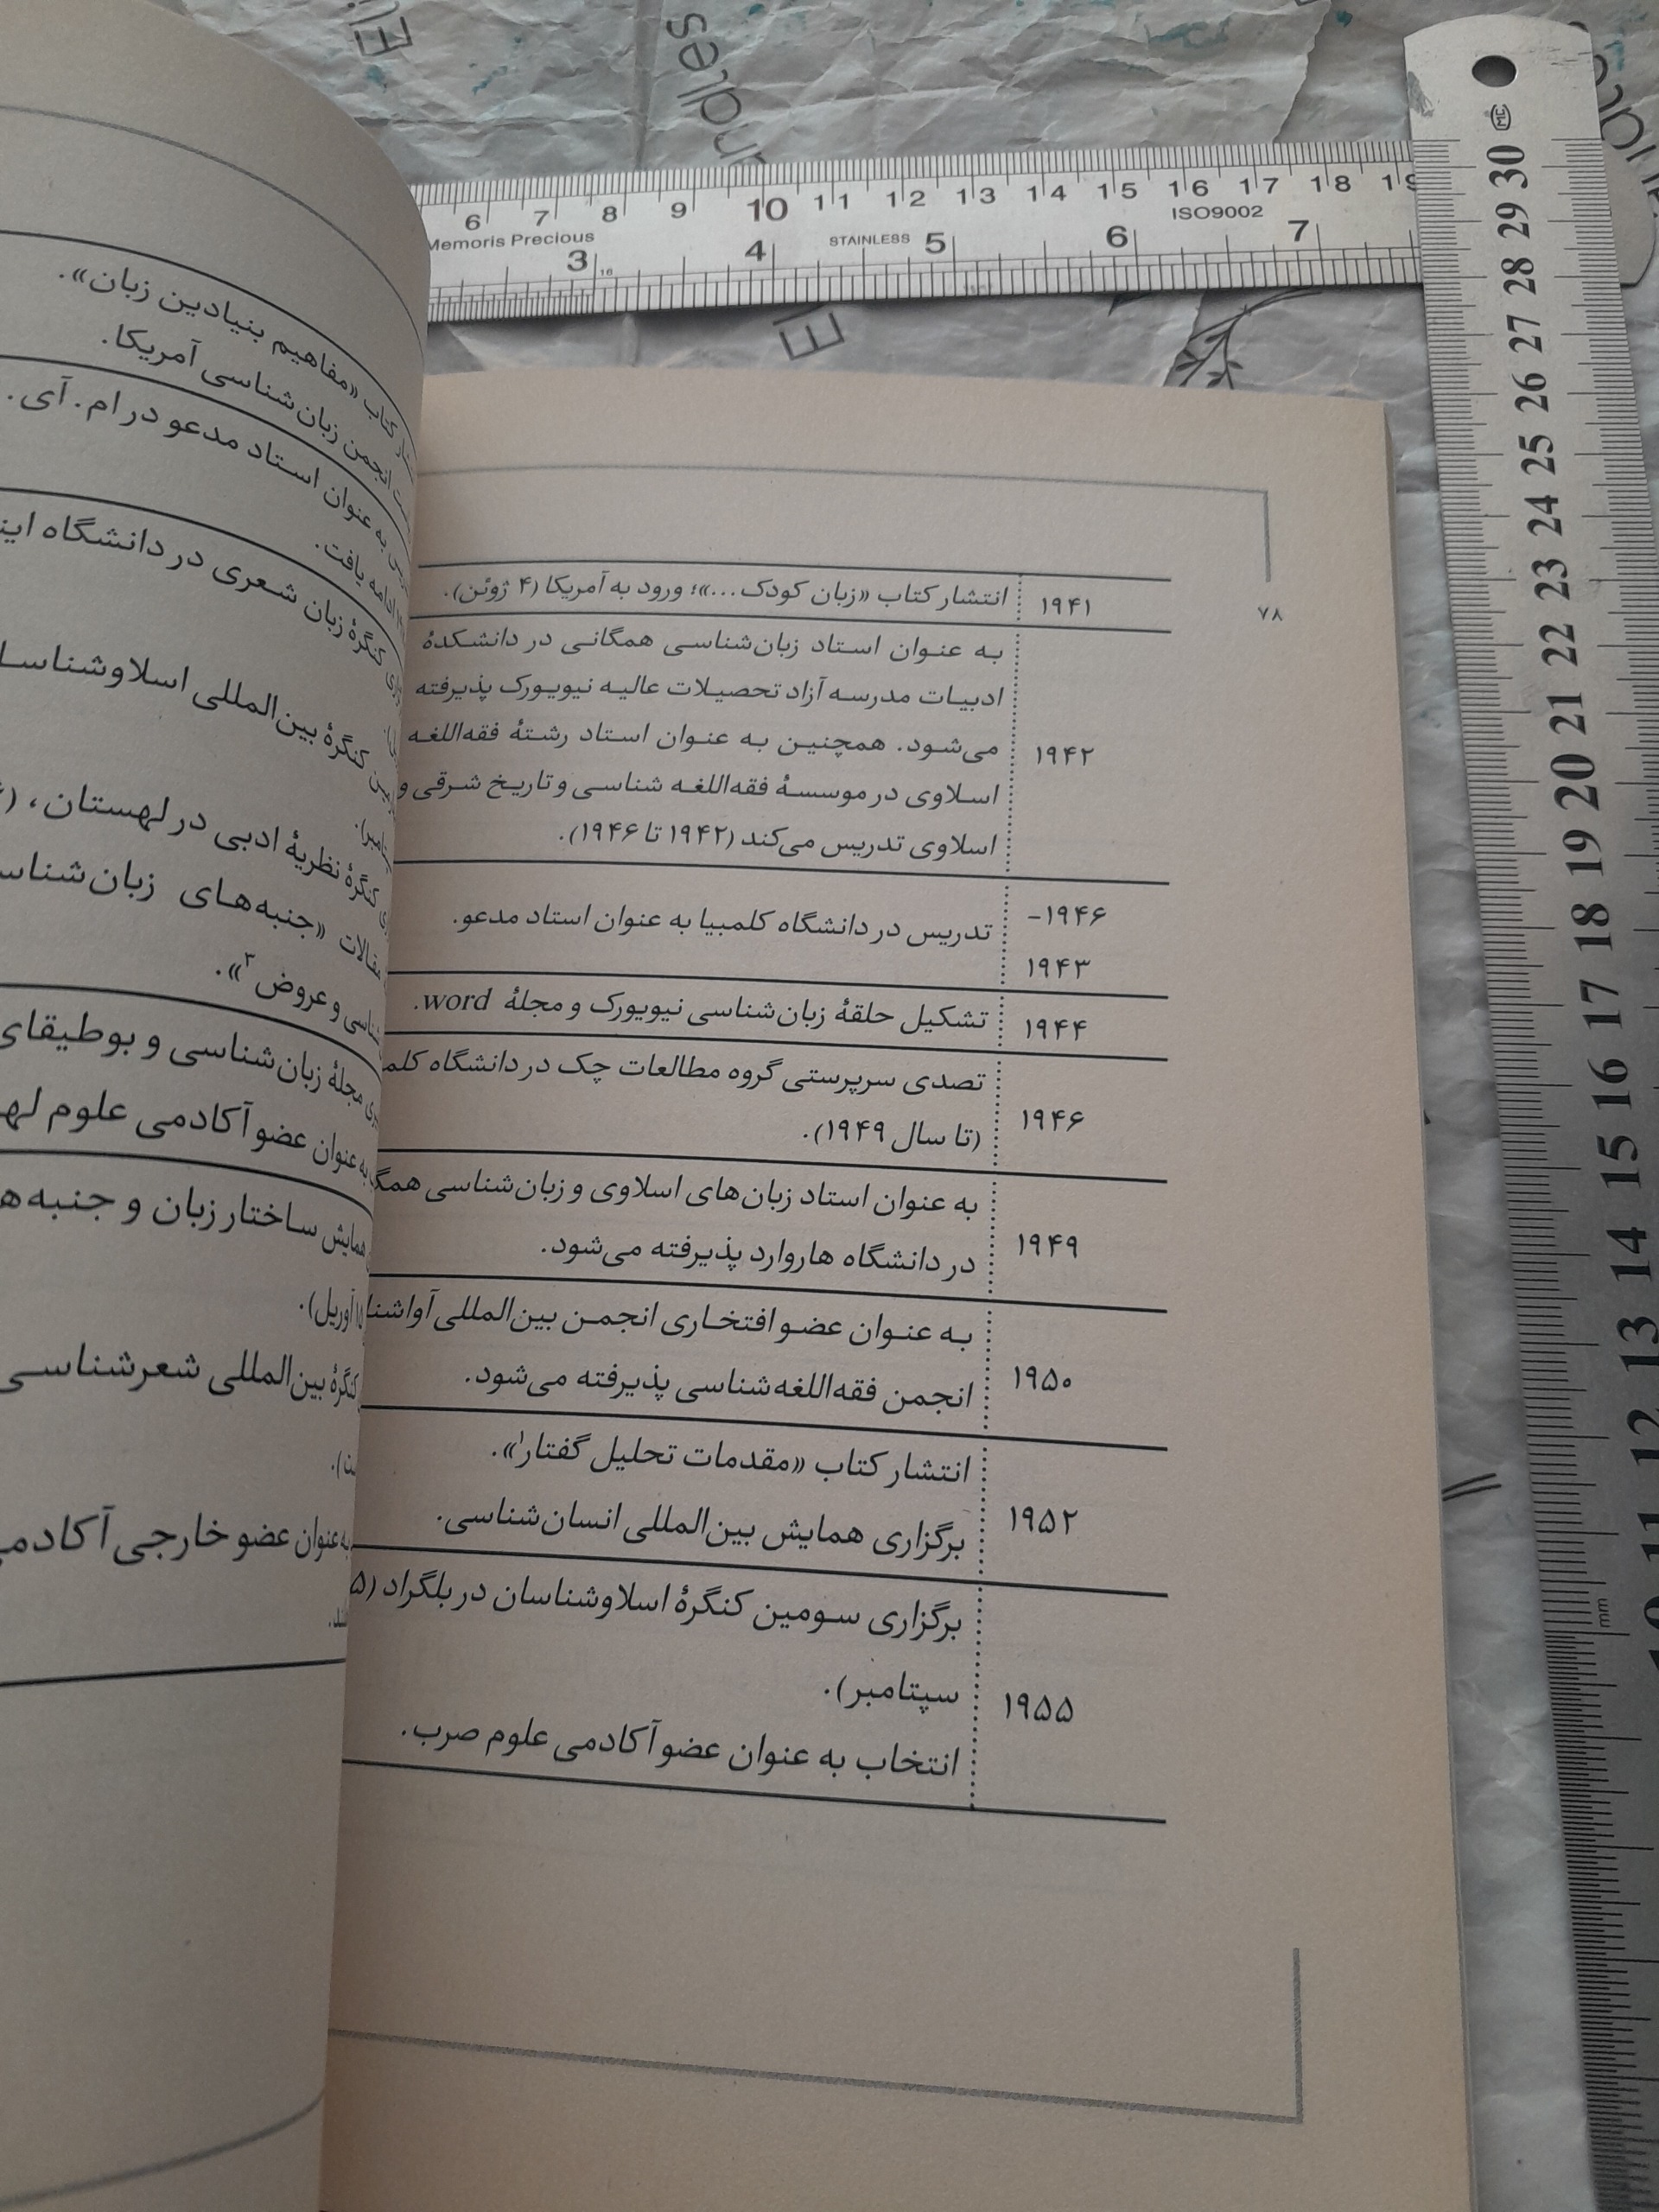 ۷۸
۱۹۴۱
انتشار کتاب «زبان کودک...»؛ ورود به آمریکا (۴ ژوئن).
۱۹۴۲
به عنوان استاد زبان‌شناسی همگانی در دانشکدهٔ
ادبیات مدرسه آزاد تحصیلات عالیه نیویورک پذیرفته
می‌شود. همچنین به عنوان استاد رشتهٔ فقه‌اللغه
اسلاوی در موسسهٔ فقه‌اللغه شناسی و تاریخ شرقی و
اسلاوی تدریس می‌کند (۱۹۴۲ تا ۱۹۴۶).
۱۹۴۶-
۱۹۴۳
تدریس در دانشگاه کلمبیا به عنوان استاد مدعو.
۱۹۴۴
تشکیل حلقهٔ زبان‌شناسی نیویورک و مجلهٔ word.
۱۹۴۶
تصدی سرپرستی گروه مطالعات چک در دانشگاه
(تا سال ۱۹۴۹).
۱۹۴۹
به عنوان استاد زبان‌های اسلاوی و زبان‌شناسی
در دانشگاه هاروارد پذیرفته می‌شود.
۱۹۵۰
به عنوان عضو افتخاری انجمن بین‌المللی
انجمن فقه‌اللغه‌شناسی پذیرفته می‌شود.
۱۹۵۲
انتشار کتاب «مقدمات تحلیل گفتار۱».
برگزاری همایش بین‌المللی انسان‌شناسی.
۱۹۵۵
برگزاری سومین کنگرهٔ اسلاوشناسان در بلگراد (۵
سپتامبر).
انتخاب به عنوان عضو آکادمی علوم صرب.
کتاب «مفاهیم بنیادین زبان».
انجمن زبان‌شناسی آمریکا.
به عنوان استاد مدعو در ام. آی.
ادامه یافت.
کنگرهٔ زبان شعری در دانشگاه
کنگرهٔ بین‌المللی
کنگرهٔ نظریهٔ ادبی در لهستان، (
مقالات «جنبه‌های زبان
و عروض۳».
مجلهٔ زبان‌شناسی و بوطیقای
به عنوان عضو آکادمی علوم
همایش ساختار زبان و
آوریل).
کنگرهٔ بین‌المللی شعرشناسی
به عنوان عضو خارجی
6 7 8 9 10 11 12 13 14 15 16 17 18
Memoris Precious
STAINLESS
ISO9002
3 4 5 6 7
16
MC
30 29 28 27 26 25 24 23 22 21 20 19 18 17 16 15 14 13 12 11 10
mm